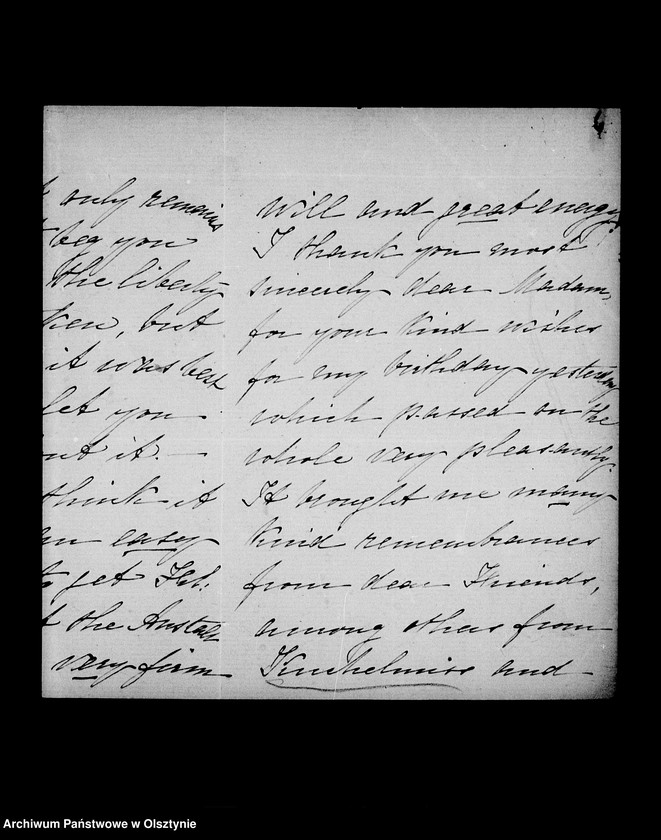 only remains
beg you
the liberty
ken, but
it was best
let you
ut it. —
think it
an easy
to get Frl.
the Anstalt
very firm
will and great energy.
I thank you most
sincerely dear Madam,
for your kind wishes
for my birthday yesterday
which passed on the
whole very pleasantly.
It brought me many
kind remembrances
from dear Friends,
among others from
and
Archiwum Państwowe w Olsztynie